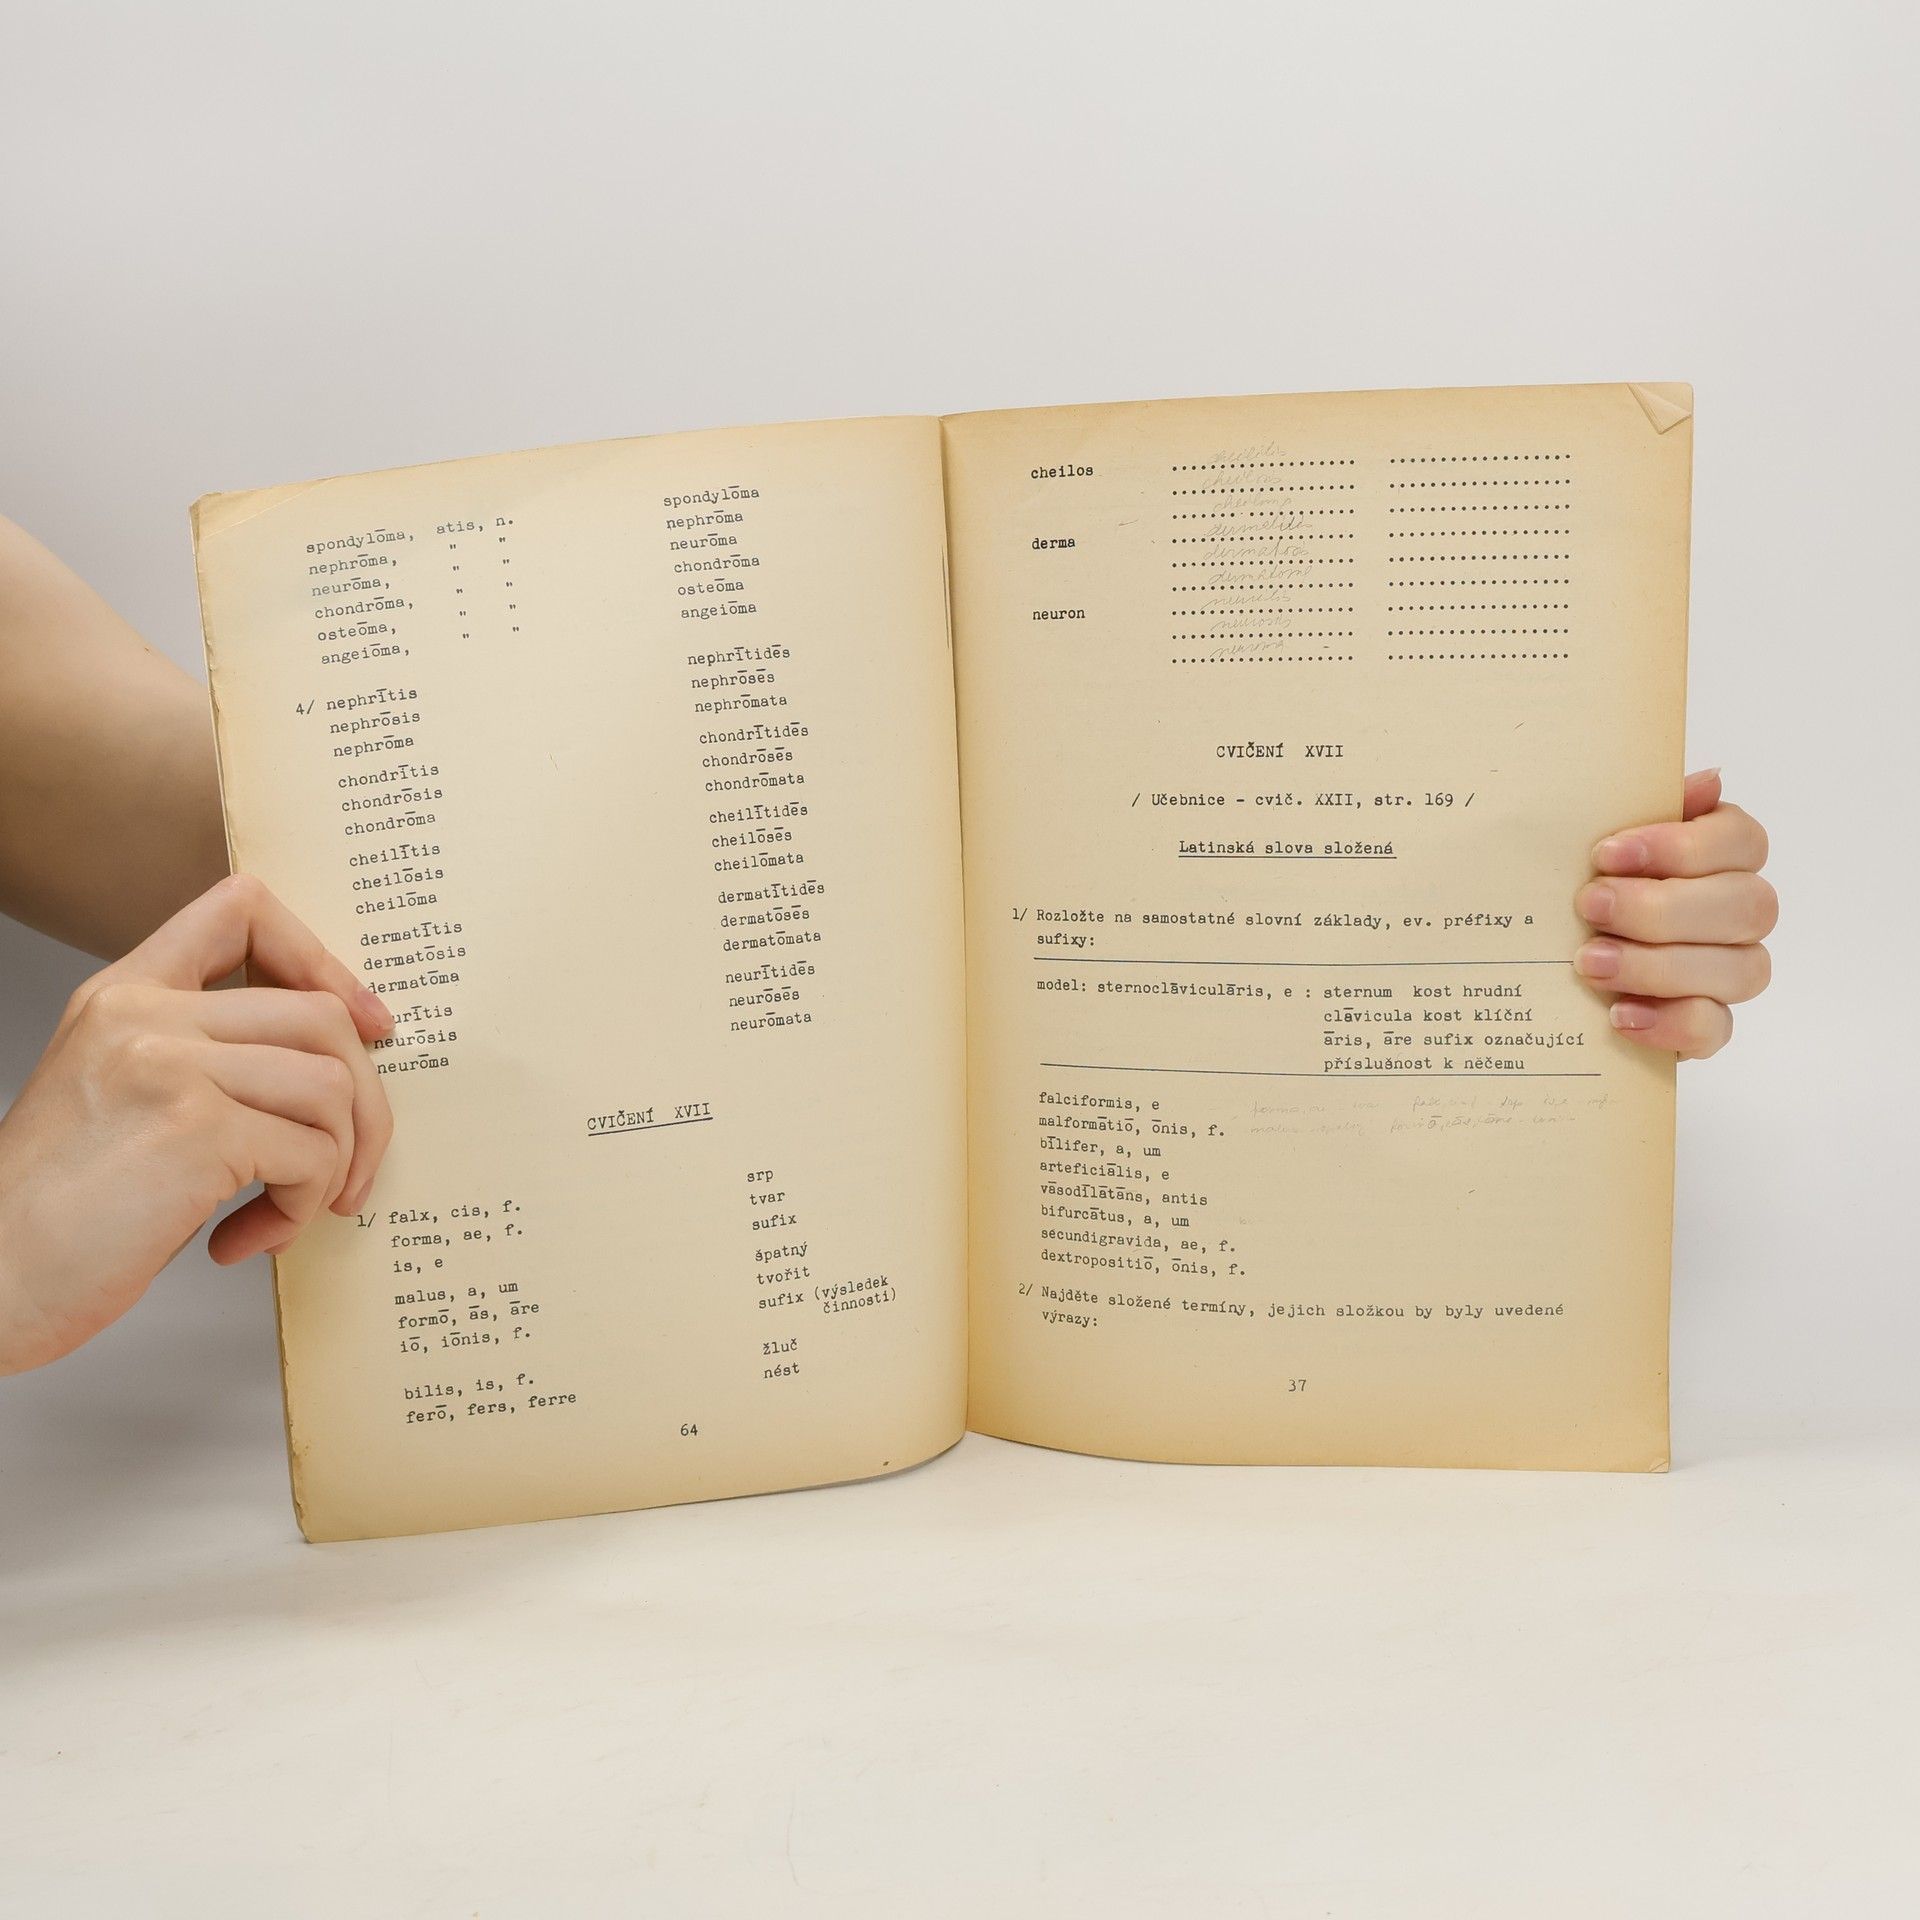 spondylōma, atis, n. spondylōma
nephrōma, " " nephrōma
neurōma, " " neurōma
chondrōma, " " chondrōma
osteōma, " " osteōma
angeiōma, " " angeiōma
4/ nephrītis nephrītidēs
nephrōsis nephrōsēs
nephrōma nephrōmata
chondrītis chondrītidēs
chondrōsis chondrōsēs
chondrōma chondrōmata
cheilītis cheilītidēs
cheilōsis cheilōsēs
cheilōma cheilōmata
dermatītis dermatītidēs
dermatōsis dermatōsēs
dermatōma dermatōmata
urītis neurītidēs
neurōsis neurōsēs
neurōma neurōmata
CVIČENÍ XVII
1/ falx, cis, f. srp
forma, ae, f. tvar
is, e sufix
malus, a, um špatný
formō, ās, āre tvořit
iō, iōnis, f. sufix (výsledek
činnosti)
bilis, is, f. žluč
ferō, fers, ferre nést
64
cheilos
derma
neuron
neuroma
CVIČENÍ XVII
/ Učebnice - cvič. XXII, str. 169 /
Latinská slova složená
1/ Rozložte na samostatné slovní základy, ev. préfixy a
sufixy:
model: sternoclāviculāris, e : sternum kost hrudní
clāvicula kost klíční
āris, āre sufix označující
příslušnost k něčemu
falciformis, e
malformātiō, ōnis, f.
bīlifer, a, um
arteficiālis, e
vāsodīlātāns, antis
bifurcātus, a, um
secundigravida, ae, f.
dextropositiō, ōnis, f.
2/ Najděte složené termíny, jejich složkou by byly uvedené
výrazy:
37